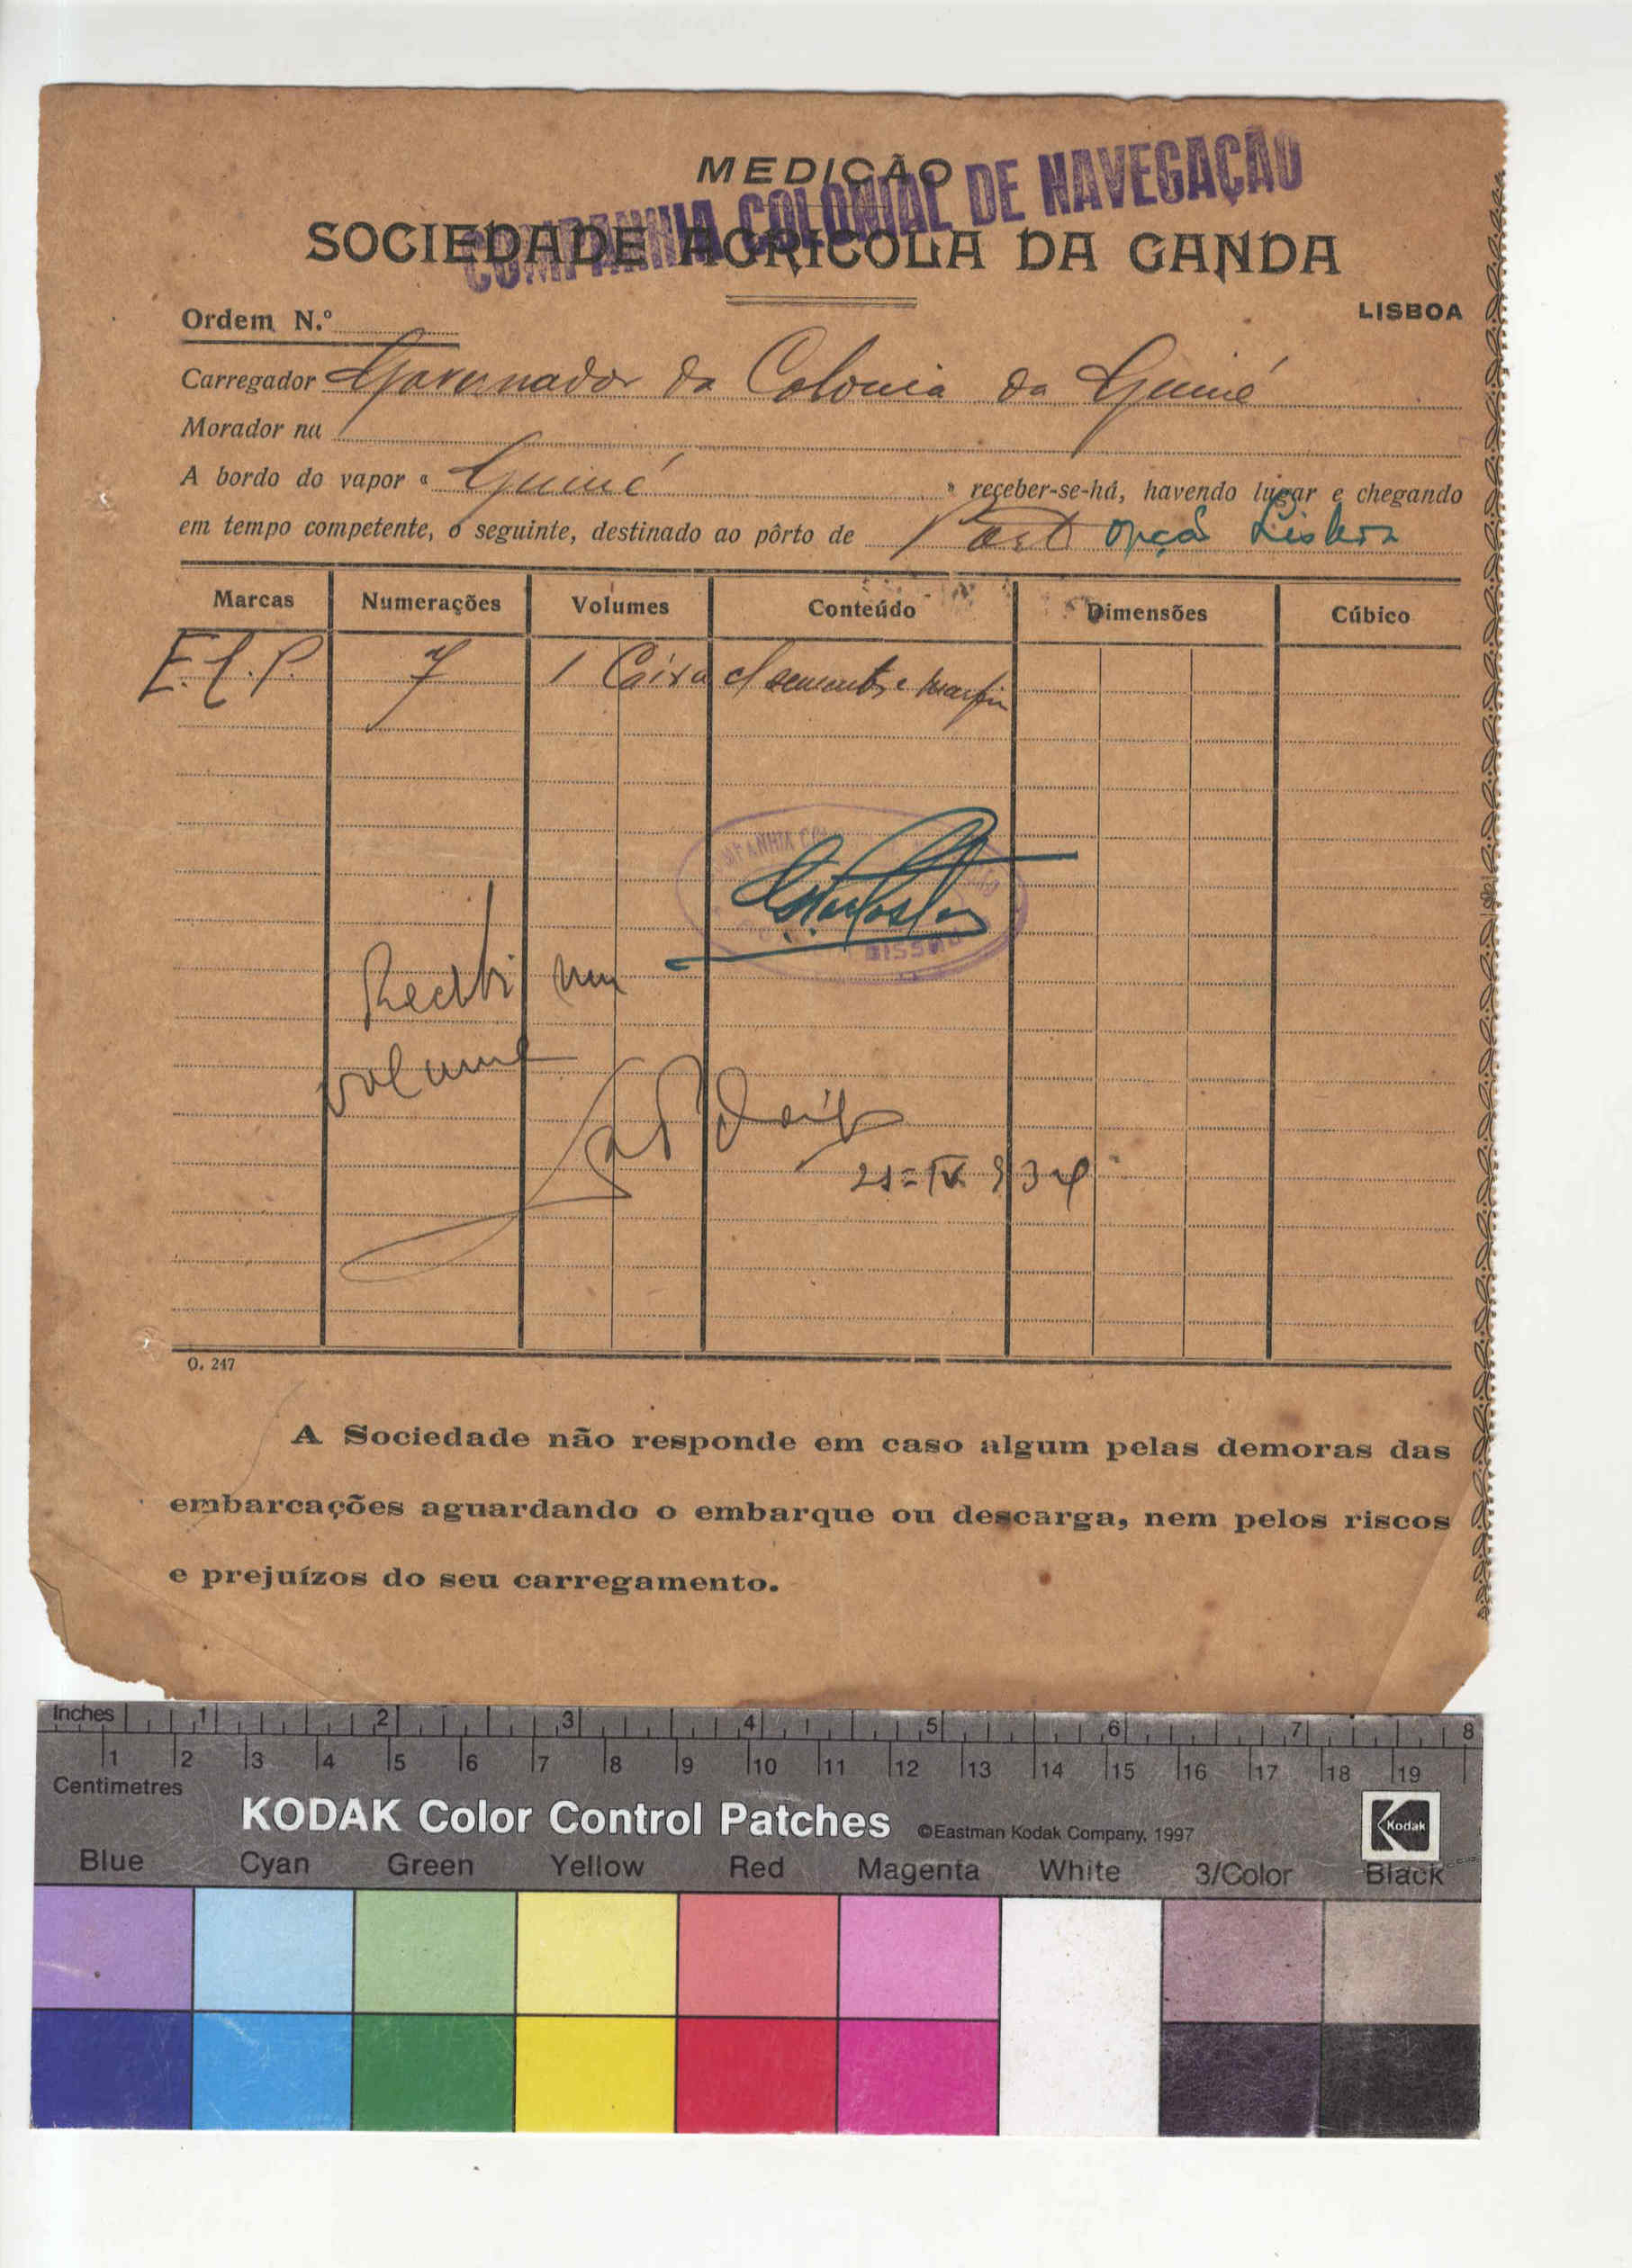 MEDIÇÃO
COMPANHIA COLONIAL DE NAVEGAÇÃO
SOCIEDADE AGRICOLA DA GANDA
LISBOA
Ordem N.º
Carregador Governador da Colonia da Guiné
Morador na
A bordo do vapor « Guiné » receber-se-há, havendo lugar e chegando
em tempo competente, o seguinte, destinado ao pôrto de opção Lisboa
Marcas Numerações Volumes Conteúdo Dimensões Cúbico
7 1 Caixa c/ semente e marfim
BISSAU
Recebi um
volume
21=IV 934
O. 247
A Sociedade não responde em caso algum pelas demoras das
embarcações aguardando o embarque ou descarga, nem pelos riscos
e prejuízos do seu carregamento.
Inches 1 2 3 4 5 6 7 8
1 2 3 4 5 6 7 8 9 10 11 12 13 14 15 16 17 18 19
Centimetres
KODAK Color Control Patches ©Eastman Kodak Company, 1997 Kodak
Blue Cyan Green Yellow Red Magenta White 3/Color Black